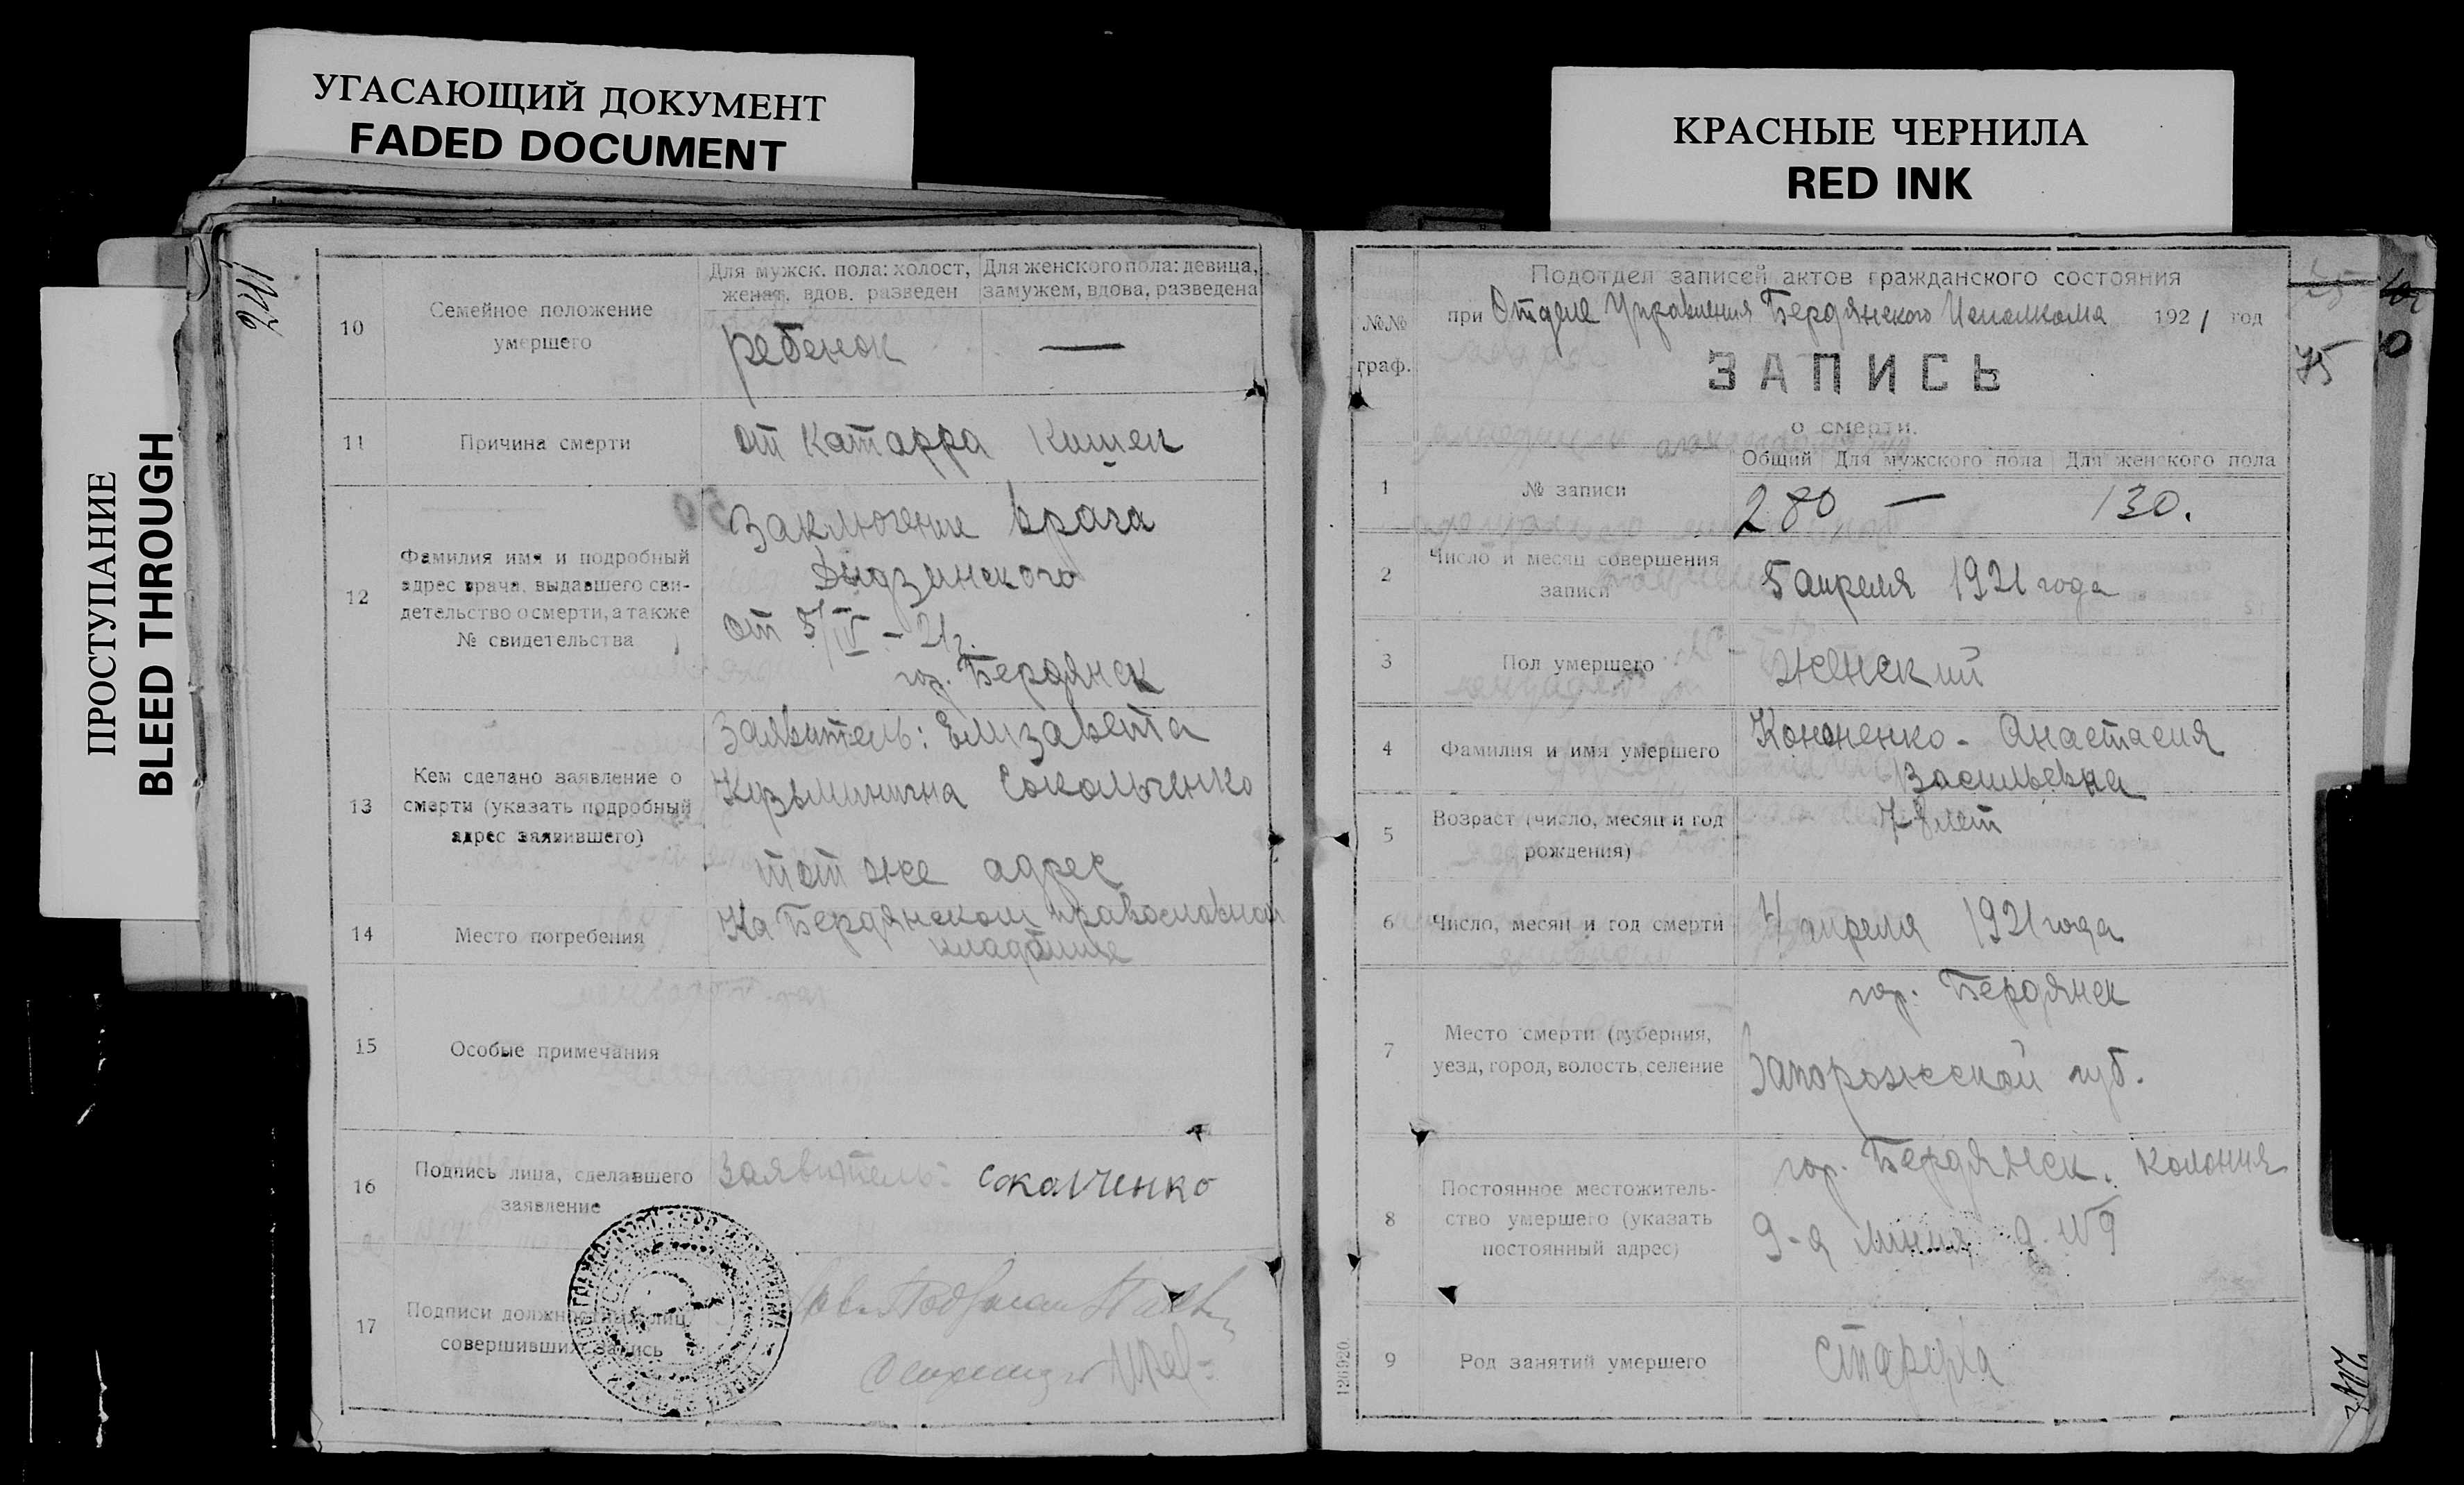 УГАСАЮЩИЙ ДОКУМЕНТ
FADED DOCUMENT
КРАСНЫЕ ЧЕРНИЛА
RED INK
ПРОСТУПАНИЕ
BLEED THROUGH
10
Семейное положение
умершего
Для мужск. пола: холост,
женат, вдов. разведен
Для женского пола: девица,
замужем, вдова, разведена
ребенок —
11
Причина смерти
от Катарра Кишек
12
Фамилия имя и подробный
адрес врача, выдавшего сви-
детельство о смерти, а также
№ свидетельства
Заключение врача
от 5/IV - 21 г.
гор. Бердянск
13
Кем сделано заявление о
смерти (указать подробный
адрес заявившего)
Заявитель: Елизавета
Кузьминична Сокольченко
тот же адрес
14
Место погребения
На Бердянском православном
кладбище
15
Особые примечания
16
Подпись лица, сделавшего
заявление
Заявитель: Соколченко
17
Подписи должностных лиц
совершивших запись
№№
граф.
Подотдел записей актов гражданского состояния
при Отделе Управления Бердянского Исполкома 1921 год
75
ЗАПИСЬ
о смерти.
Общий Для мужского пола Для женского пола
1
№ записи
280 — 130.
2
Число и месяц совершения
записи
5 апреля 1921 года
3
Пол умершего
Женский
4
Фамилия и имя умершего
Кононенко - Анастасия
Васильевна
5
Возраст (число, месяц и год
рождения)
лет
6
Число, месяц и год смерти
4 апреля 1921 года
7
Место смерти (губерния,
уезд, город, волость, селение
гор. Бердянск
Запорожской губ.
8
Постоянное местожитель-
ство умершего (указать
постоянный адрес)
гор. Бердянск. Колония
9-я линия д. №9
9
Род занятий умершего
1261920